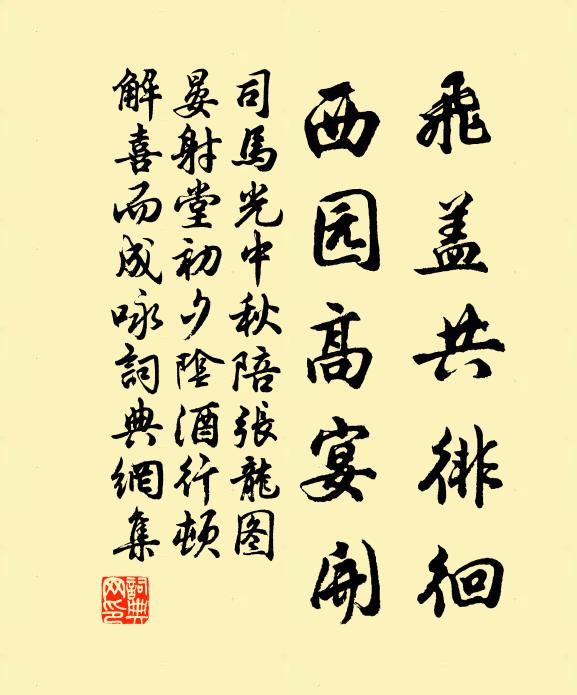 飛盖共徘徊
西园高宴開
司馬光中秋陪張龍图
晏射堂初夕陰酒行頓
解喜而成咏詞典網集